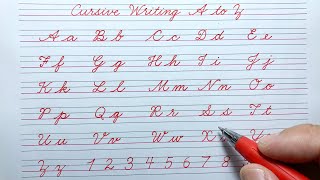 Cursive Writing A to Z
A a B b C c D d E e
F f G g H h I i J j
K k L l M m N n O o
P p Q q R r S s T t
U u V v W w X Y
Z z 1 2 3 4 5 6 7 8